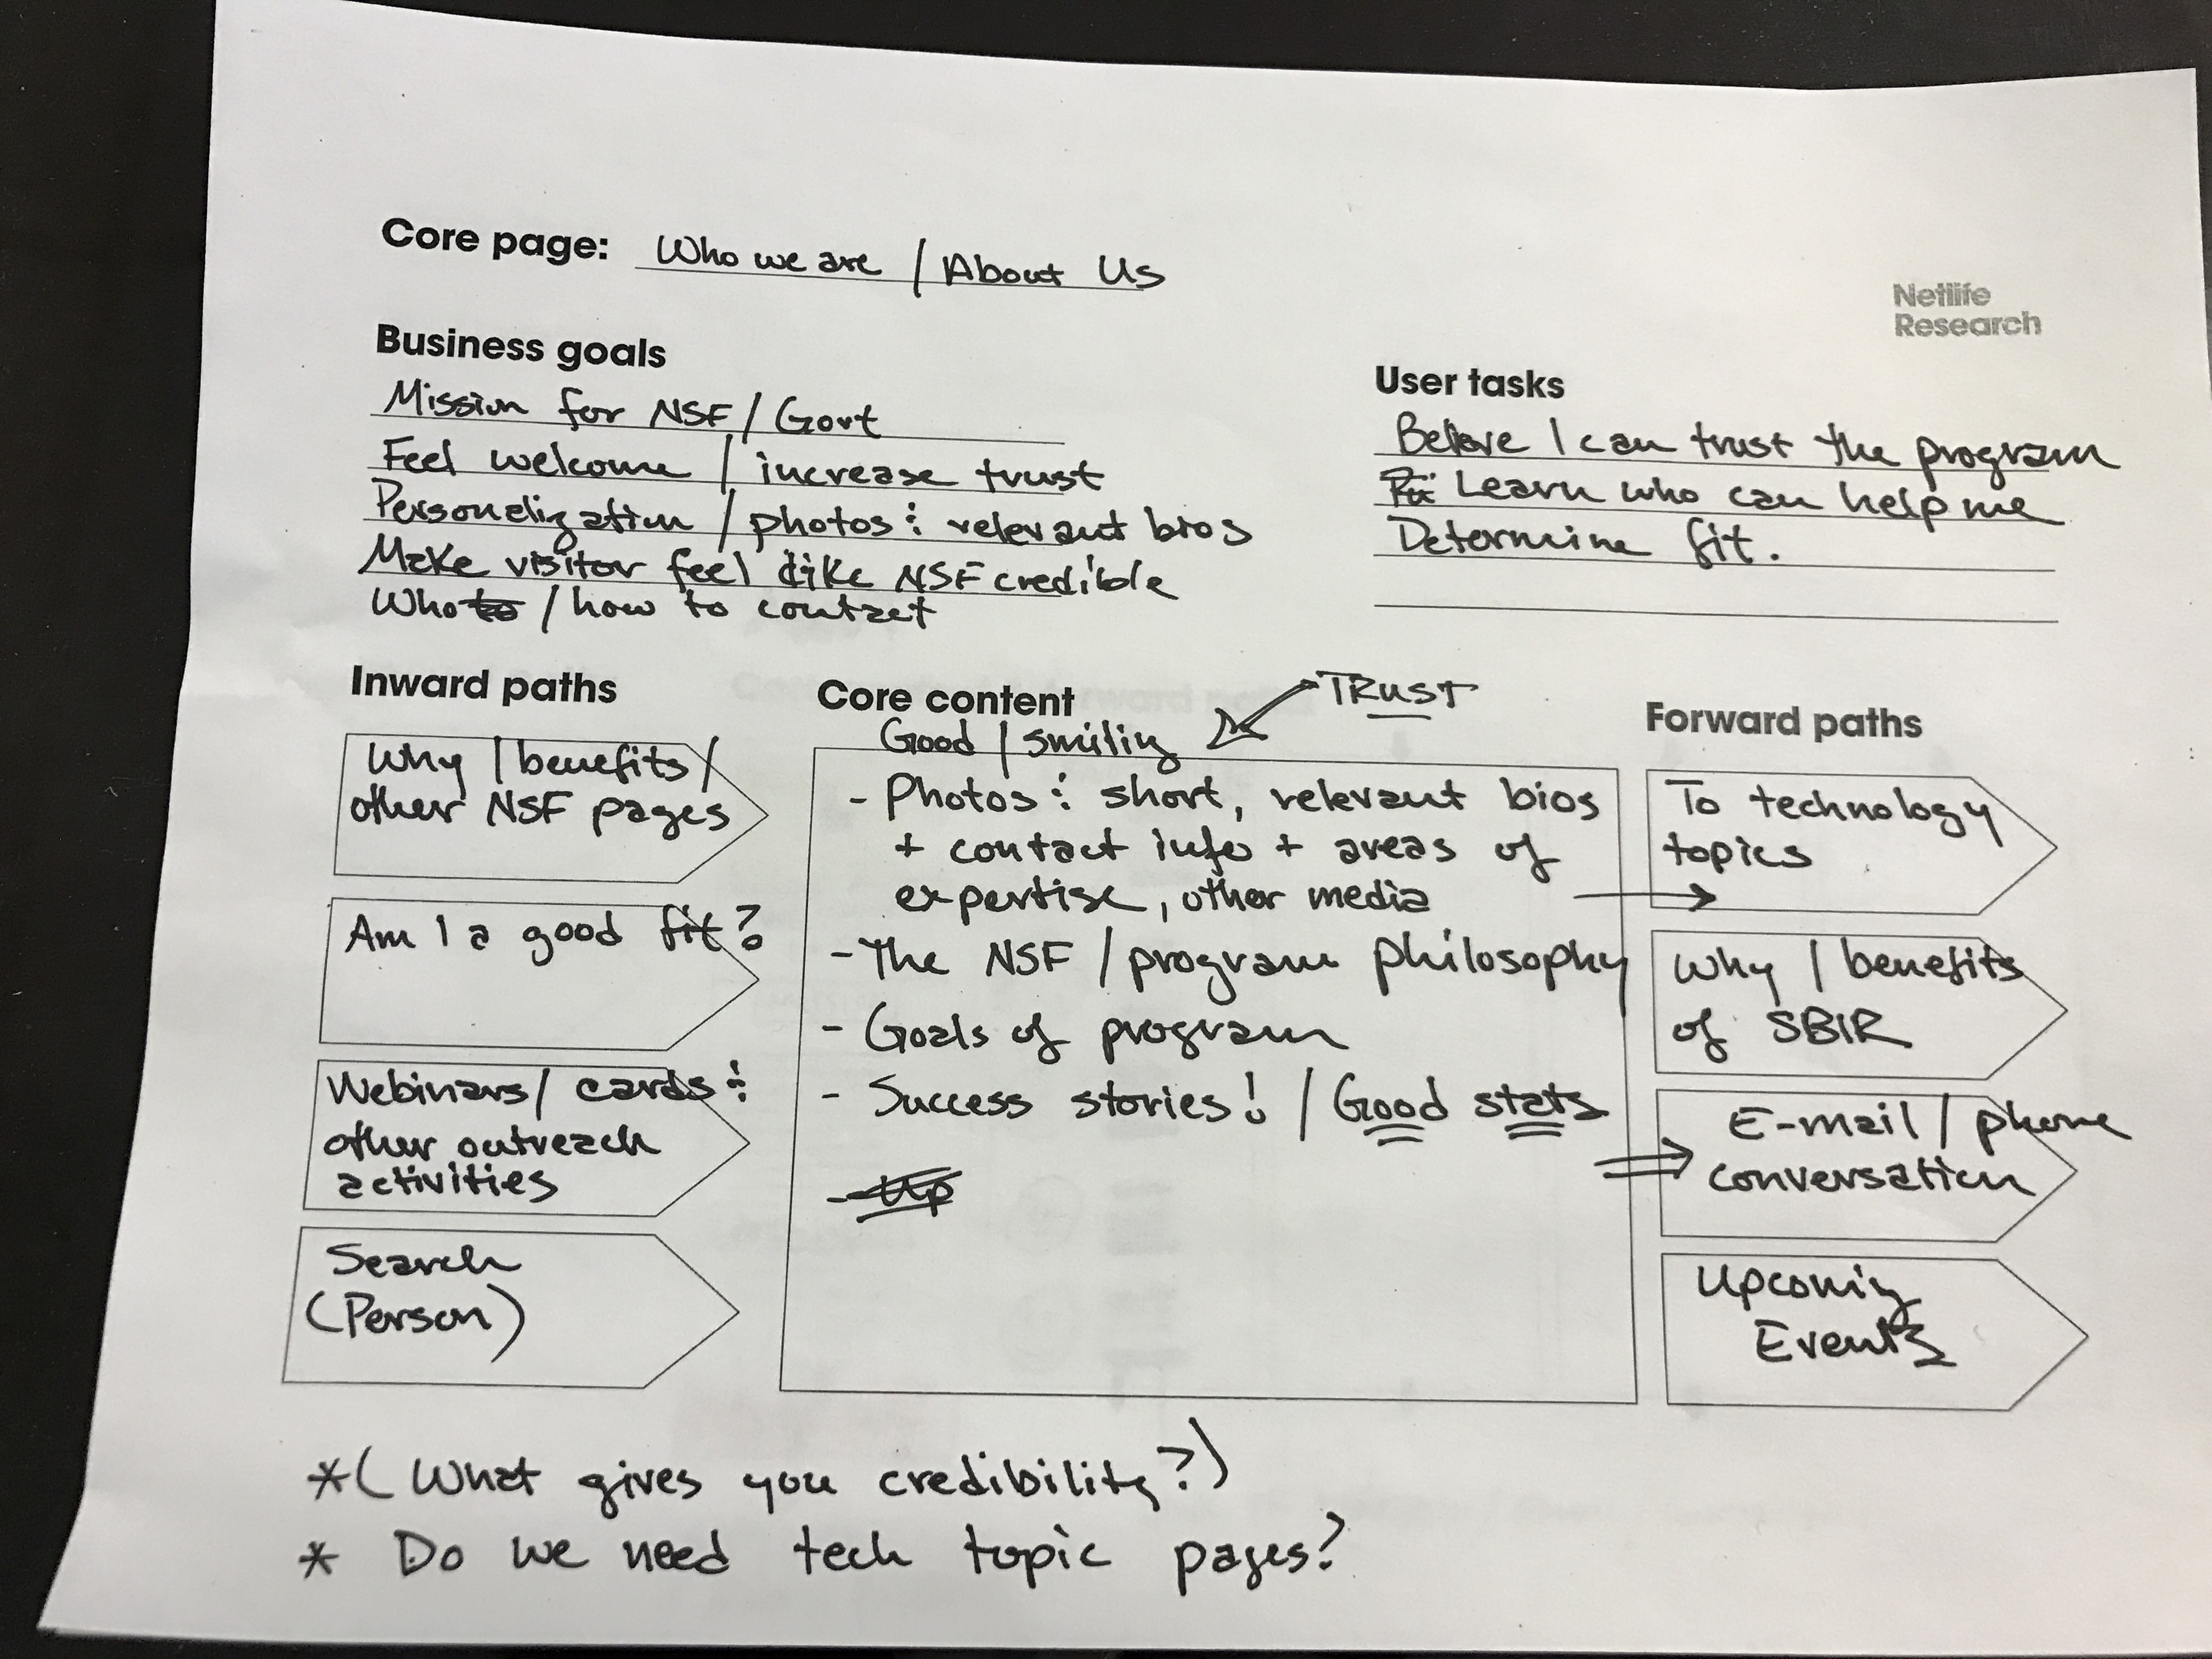 Core page: Who we are / About Us
Netlife
Research
Business goals
Mission for NSF / Govt
Feel welcome / increase trust
Personalization / photos & relevant bios
Make visitor feel like NSF credible
Who to / how to contact
User tasks
Believe I can trust the program
Learn who can help me
Determine fit.
Inward paths
Why / benefits /
other NSF pages
Am I a good fit?
Webinars / cards &
other outreach
activities
Search
(Person)
Core content
TRUST
Good / smiling
- Photos & short, relevant bios
+ contact info + areas of
expertise, other media
- The NSF / program philosophy
- Goals of program
- Success stories! / Good stats
- Up
Forward paths
To technology
topics
Why / benefits
of SBIR
E-mail / phone
conversation
Upcoming
Events
*( What gives you credibility?)
* Do we need tech topic pages?